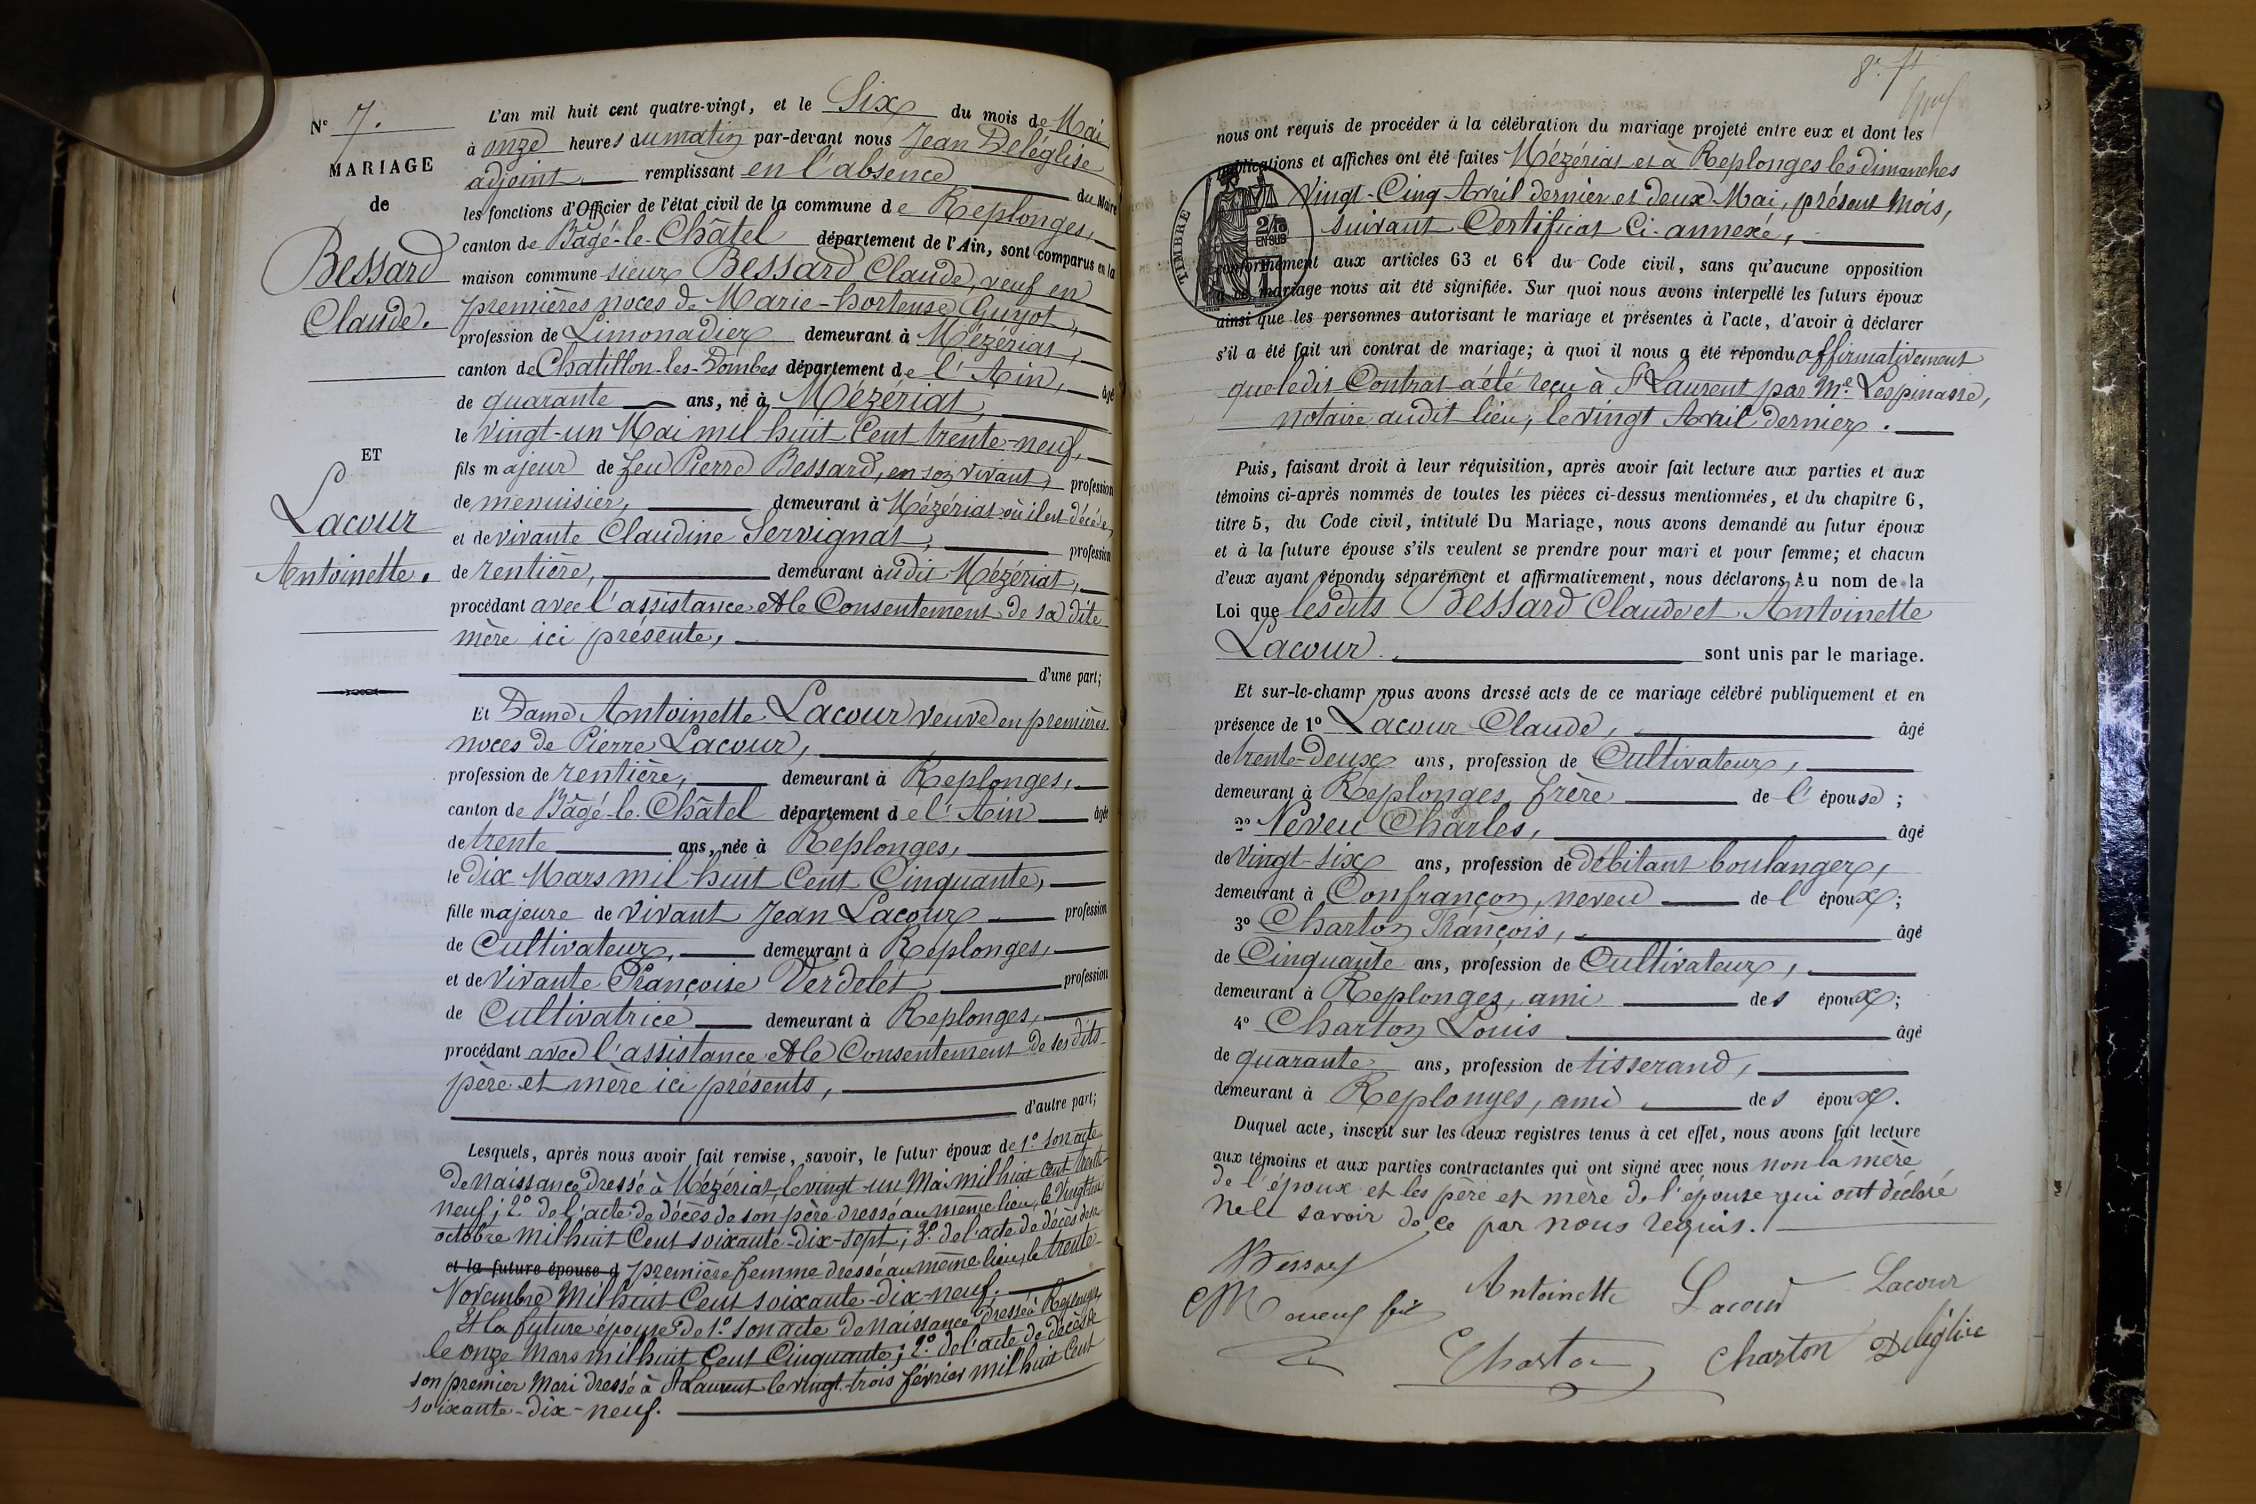 N° 7.
MARIAGE
de
Bessard
Claude.
ET
Lacour
Antoinette.
L'an mil huit cent quatre-vingt, et le Six du mois de Mai
à onze heures du matin par-devant nous Jean Deléglise
adjoint remplissant en l'absence du Maire
les fonctions d'Officier de l'état civil de la commune de Replonges,
canton de Bâgé-le-Châtel département de l'Ain, sont comparus en la
maison commune sieur Bessard Claude, veuf en
premières noces de Marie-hortense Guyot,
profession de Limonadier demeurant à Mézériat,
canton de Chatillon-les-Dombes département de l'Ain, âgé
de quarante ans, né à Mézériat,
le vingt-un Mai mil huit Cent trente-neuf,
fils majeur de feu Pierre Bessard, en son vivant profession
de menuisier, demeurant à Mézériat où il est décédé,
et de vivante Claudine Servignat, profession
de rentière, demeurant àudit Mézériat,
procédant avec l'assistance et le Consentement de sa dite
mère ici présente,
d'une part;
Et Dame Antoinette Lacour veuve en premières
noces de Pierre Lacour,
profession de rentière, demeurant à Replonges,
canton de Bâgé-le-Châtel département de l'Ain âgée
de trente ans, née à Replonges,
le Dix Mars mil huit Cent Cinquante,
fille majeure de vivant Jean Lacour profession
de Cultivateur, demeurant à Replonges,
et de vivante Françoise Verdelet, profession
de Cultivatrice demeurant à Replonges,
procédant avec l'assistance et le Consentement de ses dits
père et mère ici présents,
d'autre part;
Lesquels, après nous avoir fait remise, savoir, le futur époux de 1° son acte
de Naissance Dressé à Mézériat, le vingt-un Mai mil huit cent trente-
neuf; 2° de l'acte de décès de son père dressé au même lieu, le Vingt-un
octobre mil huit Cent soixante-dix-sept; 3° de l'acte de décès de sa
et la future épouse d première femme dressé au même lieu, le trente
Novembre Mil huit Cent soixante-dix-neuf.
Et la future épouse de 1° son acte de Naissance Dressé à Replonges
le onze Mars mil huit Cent Cinquante; 2° de l'acte de décès de
son premier Mari dressé à St Laurent le vingt-trois février mil huit Cent
soixante-dix-neuf.
8e
nous ont requis de procéder à la célébration du mariage projeté entre eux et dont les
publications et affiches ont été faites Mézériat et à Replonges les dimanches
Vingt-Cinq Avril dernier et deux Mai, présent Mois,
suivant Certificat Ci-annexé,
TIMBRE
2/10
EN SUS
conformément aux articles 63 et 64 du Code civil, sans qu'aucune opposition
à ce mariage nous ait été signifiée. Sur quoi nous avons interpellé les futurs époux
ainsi que les personnes autorisant le mariage et présentes à l'acte, d'avoir à déclarer
s'il a été fait un contrat de mariage; à quoi il nous a été répondu affirmativement
que ledit Contrat a été reçu à St Laurent par Me Lespinasse,
notaire audit lieu, le vingt Avril dernier.
Puis, faisant droit à leur réquisition, après avoir fait lecture aux parties et aux
témoins ci-après nommés de toutes les pièces ci-dessus mentionnées, et du chapitre 6,
titre 5, du Code civil, intitulé Du Mariage, nous avons demandé au futur époux
et à la future épouse s'ils veulent se prendre pour mari et pour femme; et chacun
d'eux ayant répondu séparément et affirmativement, nous déclarons Au nom de la
Loi que les dits Bessard Claude et Antoinette
Lacour sont unis par le mariage.
Et sur-le-champ nous avons dressé acte de ce mariage célébré publiquement et en
présence de 1° Lacour Claude, âgé
de trente-Deux ans, profession de Cultivateur,
demeurant à Replonges, frère de l'épouse;
2° Neveu Charles, âgé
de Vingt-six ans, profession de débitant boulanger,
demeurant à Confrançon, neveu de l'époux;
3° Charton François, âgé
de Cinquante ans, profession de Cultivateur,
demeurant à Replonges, ami des époux;
4° Charton Louis âgé
de quarante ans, profession de tisserand,
demeurant à Replonges, ami des époux.
Duquel acte, inscrit sur les deux registres tenus à cet effet, nous avons fait lecture
aux témoins et aux parties contractantes qui ont signé avec nous non la mère
de l'époux et les père et mère de l'épouse qui ont déclaré
ne le savoir de ce par nous requis.
Bessard
Antoinette Lacour Lacour
Charton Charton Deléglise